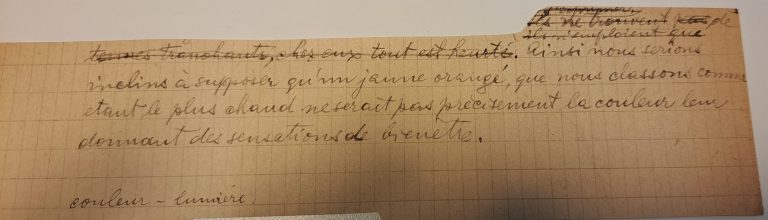 s'exprimer
ils ne trouvent pas de
ils n'emploient que
termes tranchants, chez eux tout est heurté. Ainsi nous serions
inclins à supposer qu'un jaune orangé, que nous classons comme
etant le plus chaud ne serait pas précisement la couleur leur
donnant des sensations de bienêtre.
couleur - lumière.